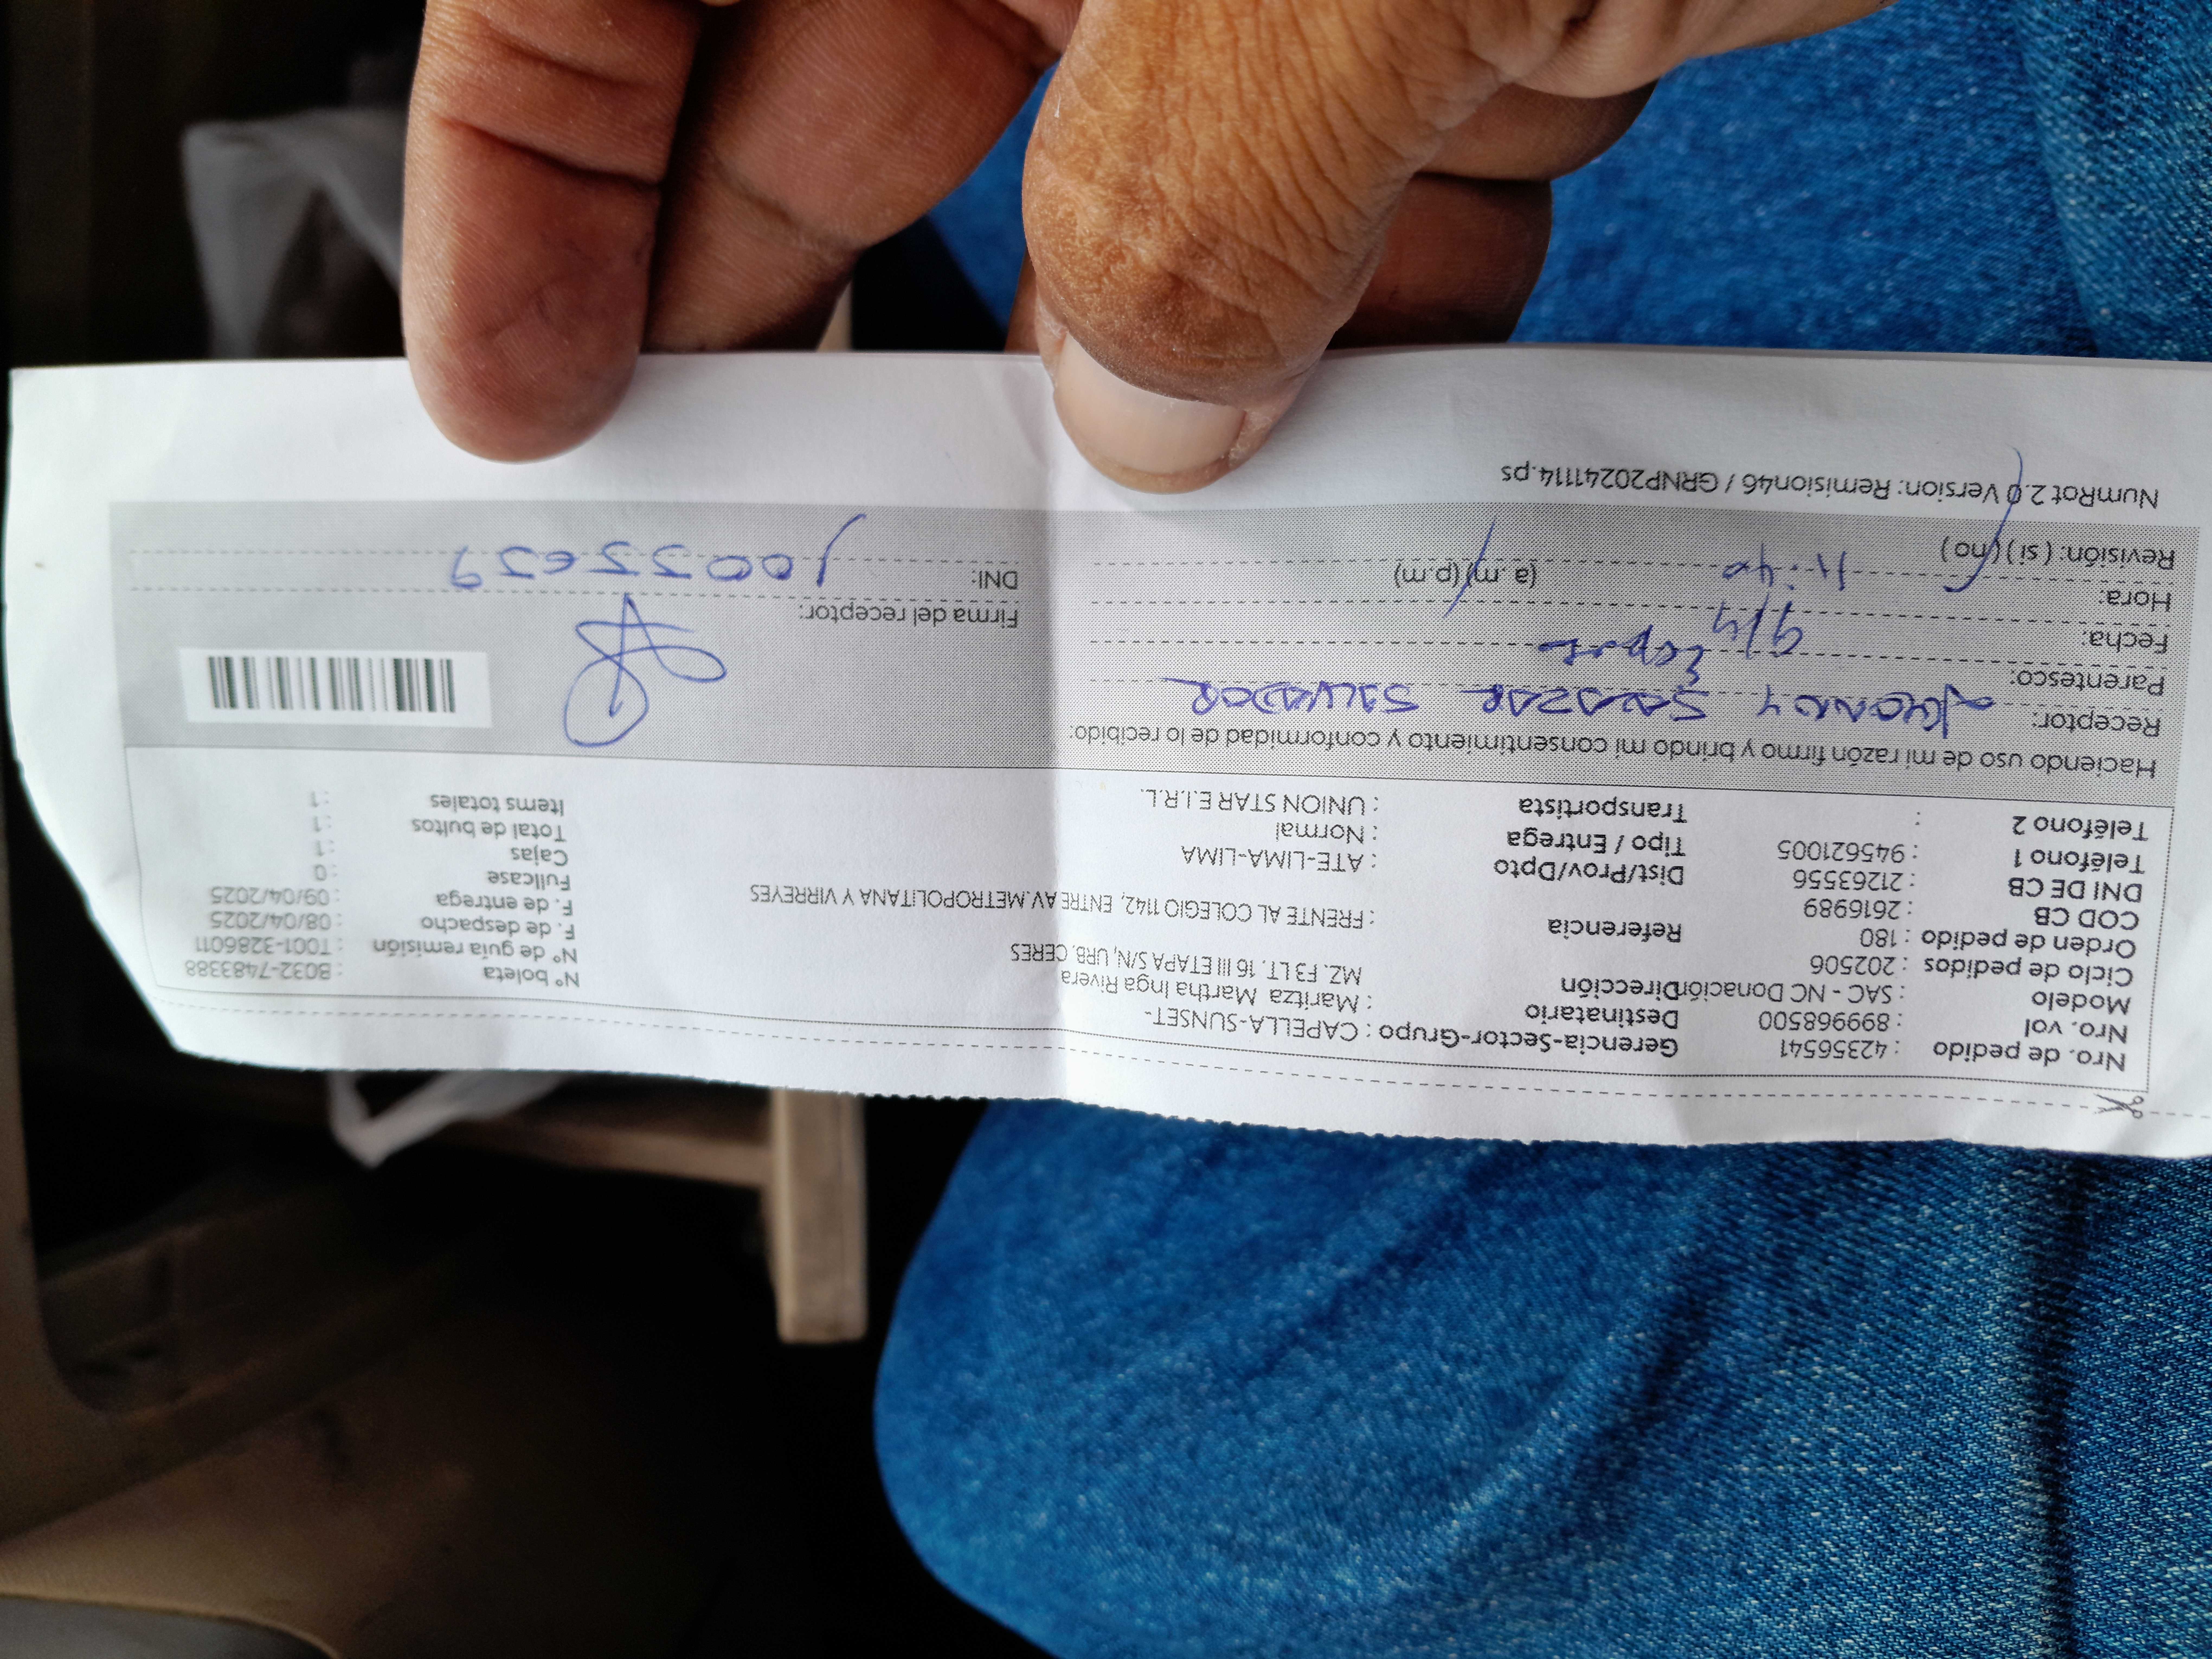 Nro. de pedido : 42356541 Gerencia-Sector-Grupo : CAPELLA-SUNSET-
Nro. vol : 899968500 Destinatario : Maritza Martha Inga Rivera Nº boleta : B032-7483388
Modelo : SAC - NC Donación Dirección MZ. F3 LT. 16 III ETAPA S/N, URB. CERES Nº de guia remisión : T001-3286011
Ciclo de pedidos : 202506 F. de despacho : 08/04/2025
Orden de pedido : 180 Referencia : FRENTE AL COLEGIO 1142, ENTRE AV.METROPOLITANA Y VIRREYES F. de entrega : 09/04/2025
COD CB : 2616989 Fullcase : 0
DNI DE CB : 21263556 Dist/Prov/Dpto : ATE-LIMA-LIMA Cajas : 1
Teléfono 1 : 945621005 Tipo / Entrega : Normal Total de bultos : 1
Teléfono 2 : Transportista : UNION STAR E.I.R.L. Items totales : 1
Haciendo uso de mi razón firmo y brindo mi consentimiento y conformidad de lo recibido:
Receptor: SALAZAR SALVADOR
Parentesco:
Fecha: 9/4 Firma del receptor:
Hora: 11:40 (a.m) (p.m) DNI:
Revisión: ( si ) ( no )
NumRot 2.0 Version: Remision46 / GRNP20241114.ps